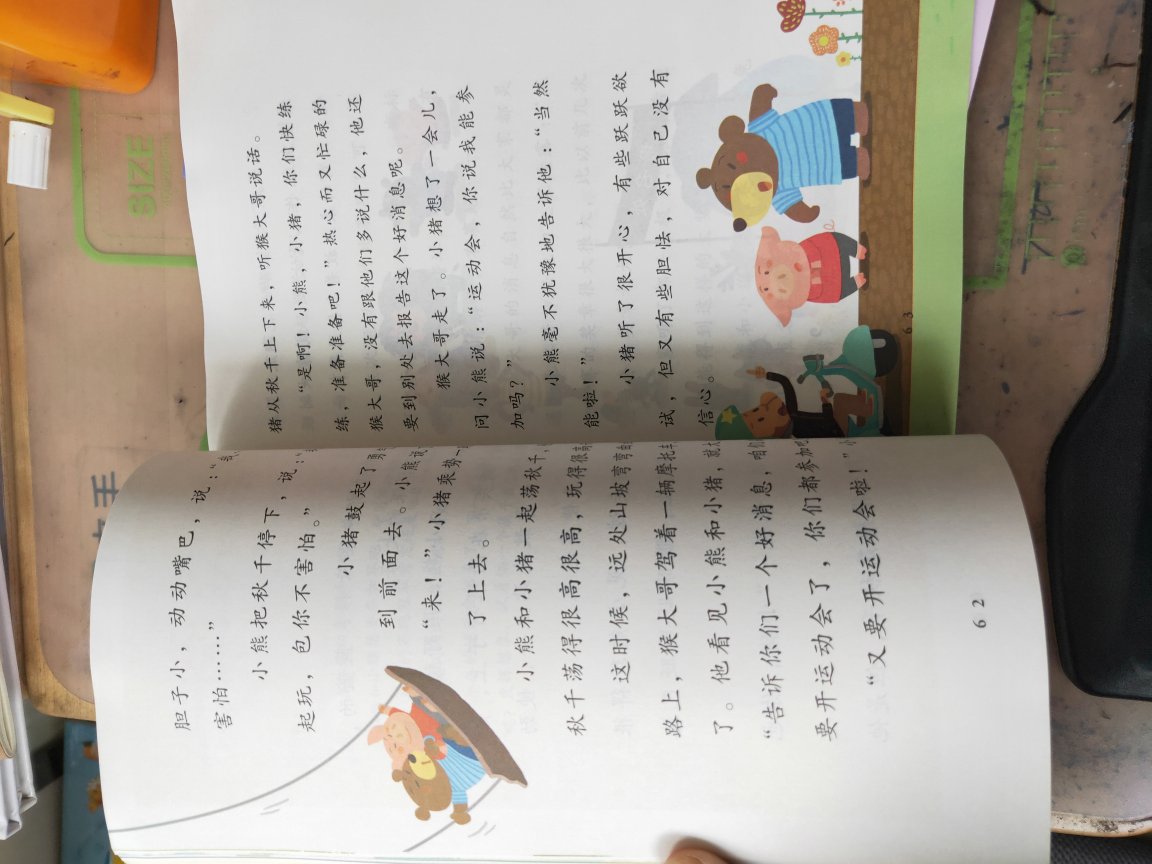 胆子小，动动嘴巴，说：“我
害怕……”
小熊把秋千停下，说：“
起玩，包你不害怕。”
小猪鼓起了勇
到前面去。小熊说
“来！”小猪乘势一
了上去。
小熊和小猪一起荡秋千，
秋千荡得很高很高，玩得很
这时候，远处山坡弯弯的
路上，猴大哥驾着一辆摩托车
了。他看见小熊和小猪，就
“告诉你们一个好消息，咱们
要开运动会了，你们都参加吧
“又要开运动会啦！”小
62
猪从秋千上下来，听猴大哥说话。
“是啊！小熊，小猪，你们快练
练，准备准备吧！”热心而又忙碌的
猴大哥，没有跟他们多说什么，他还
要到别处去报告这个好消息呢。
猴大哥走了。小猪想了一会儿，
问小熊说：“运动会，你说我能参
加吗？”
小熊毫不犹豫地告诉他：“当然
能啦！”
小猪听了很开心，有些跃跃欲
试，但又有些胆怯，对自己没有
信心。
63
SIZE